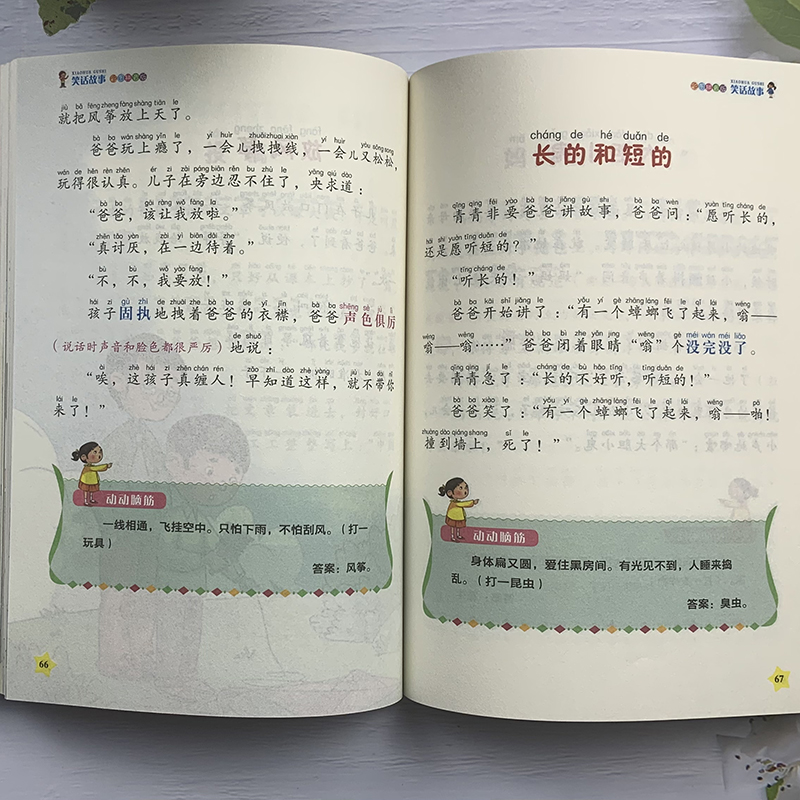 XIAOHUA GUSHI
笑话故事
jiù bǎ fēng zheng fàng shàng tiān le
就把风筝放上天了。
bà ba wán shàng yǐn le yī huìr zhuāi zhuai xiàn yī huìr yòu sōng song
爸爸玩上瘾了，一会儿拽拽线，一会儿又松松，
wán de hěn rèn zhēn ér zi zài páng biān rěn bu zhù le yāng qiú dào
玩得很认真。儿子在旁边忍不住了，央求道：
bà ba gāi ràng wǒ fàng la
“爸爸，该让我放啦。”
zhēn tǎo yàn zài yī biān dāi zhe
“真讨厌，在一边待着。”
bù bù wǒ yào fàng
“不，不，我要放！”
hái zi gù zhí de zhuāi zhe bà ba de yī jīn bà ba shēng sè jù lì
孩子固执地拽着爸爸的衣襟，爸爸声色俱厉
de shuō
（说话时声音和脸色都很严厉）地说：
ài zhè hái zi zhēn chán rén zǎo zhī dào zhè yàng jiù bù dài nǐ
“唉，这孩子真缠人！早知道这样，就不带你
lái le
来了！”
动动脑筋
一线相通，飞挂空中。只怕下雨，不怕刮风。（打一
玩具）
答案：风筝。
66
XIAOHUA GUSHI
笑话故事
cháng de hé duǎn de
长的和短的
qīng qing fēi yào bà ba jiǎng gù shi bà ba wèn yuàn tīng cháng de
青青非要爸爸讲故事，爸爸问：“愿听长的，
hái shi yuàn tīng duǎn de
还是愿听短的？”
tīng cháng de
“听长的！”
bà ba kāi shǐ jiǎng le yǒu yí gè zhāng láng fēi le qǐ lái wēng
爸爸开始讲了：“有一个蟑螂飞了起来，嗡——
wēng wēng bà ba bì zhe yǎn jing wēng gè méi wán méi liǎo
嗡——嗡……”爸爸闭着眼睛“嗡”个没完没了。
qīng qing jí le cháng de bù hǎo tīng tīng duǎn de
青青急了：“长的不好听，听短的！”
bà ba xiào le yǒu yí gè zhāng láng fēi le qǐ lái wēng pā
爸爸笑了：“有一个蟑螂飞了起来，嗡——啪！
zhuàng dào qiáng shang sǐ le
撞到墙上，死了！”
动动脑筋
身体扁又圆，爱住黑房间。有光见不到，人睡来捣
乱。（打一昆虫）
答案：臭虫。
67